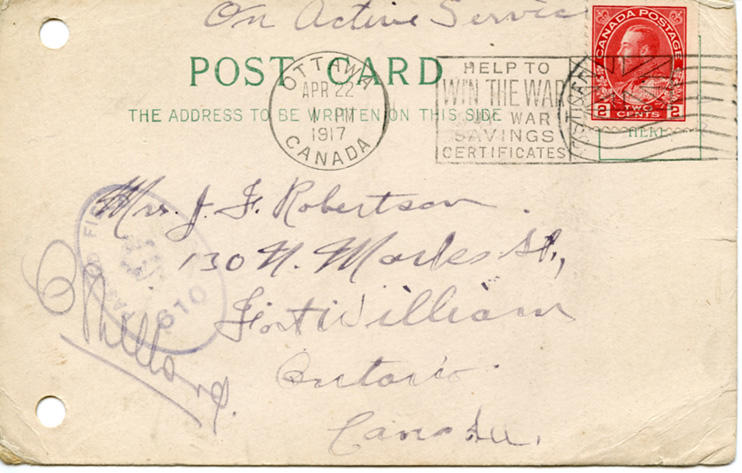 On Active Service
CANADA POSTAGE
2 TWO CENTS 2
POST CARD
OTTAWA
APR 22
PM
1917
CANADA
HELP TO
WIN THE WAR
BUY WAR
SAVINGS
CERTIFICATES
HERE
THE ADDRESS TO BE WRITTEN ON THIS SIDE
Mrs. J. F. Robertson.
130 N. Marks St.,
Fort William
Ontario
Canada.
PASSED FI
610